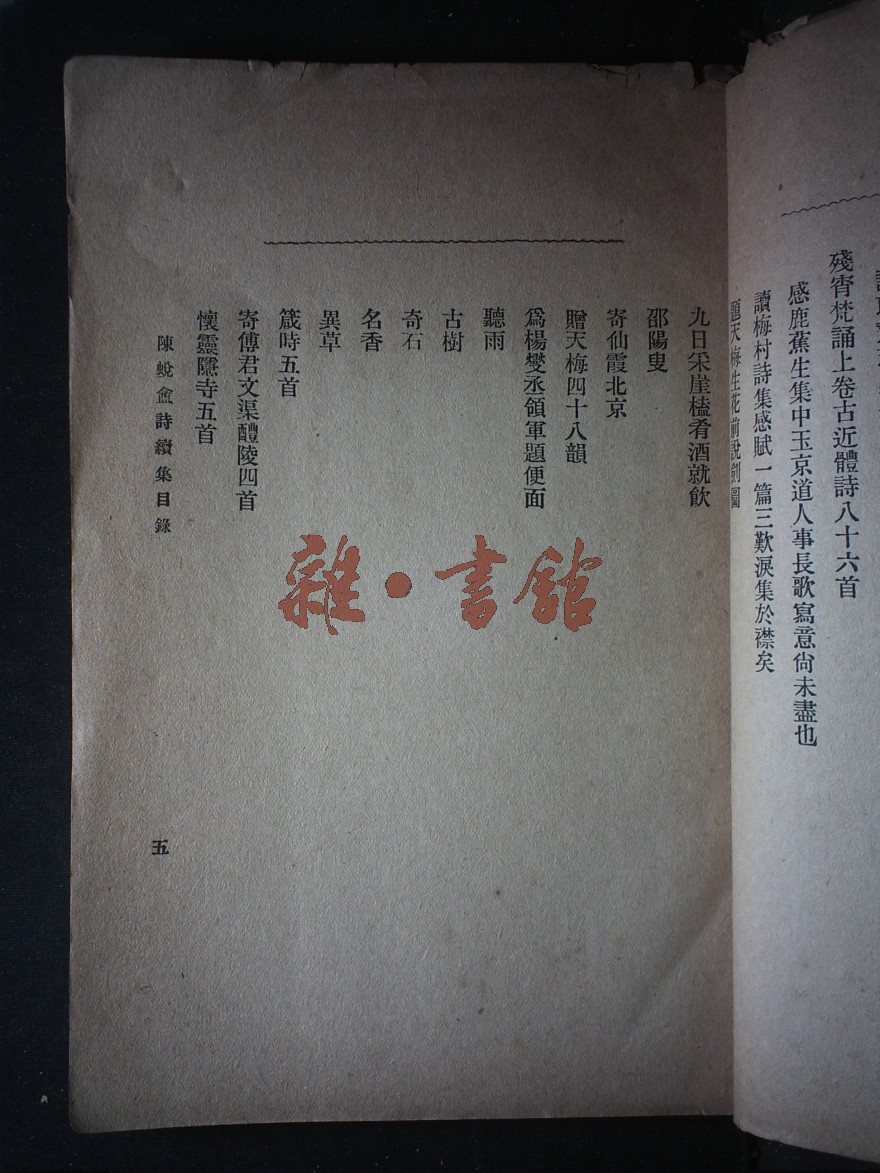 殘宵梵誦上卷古近體詩八十六首
感鹿蕉生集中玉京道人事長歌寫意尙未盡也
讀梅村詩集感賦一篇三歎淚集於襟矣
題天梅生花前說劍圖
九日采崖榼肴酒就飲
邵陽叟
寄仙霞北京
贈天梅四十八韻
爲楊燮丞領軍題便面
聽雨
古樹
奇石
名香
異草
箴時五首
寄傅君文渠醴陵四首
懷靈隱寺五首
陳蛻盦詩續集目錄
五
雜·書館